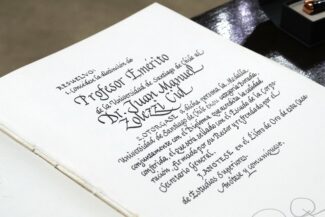 RESUELVO:
Concédese la distinción de
Profesor Emérito
de la Universidad de Santiago de Chile al
Dr. Juan Manuel
Zolezzi Cid
OTÓRGASE a dicha persona la Medalla
Universidad de Santiago de Chile en categoría Dorada,
conjuntamente con el Diploma que acredita la calidad
conferida, el que será sellado con el Escudo de la Corpo-
ración, firmado por su Rector y refrendado por el
Secretario General.
y ANÓTESE en el Libro de Oro de esta Casa
de Estudios Superiores.
Anótese y comuníquese.